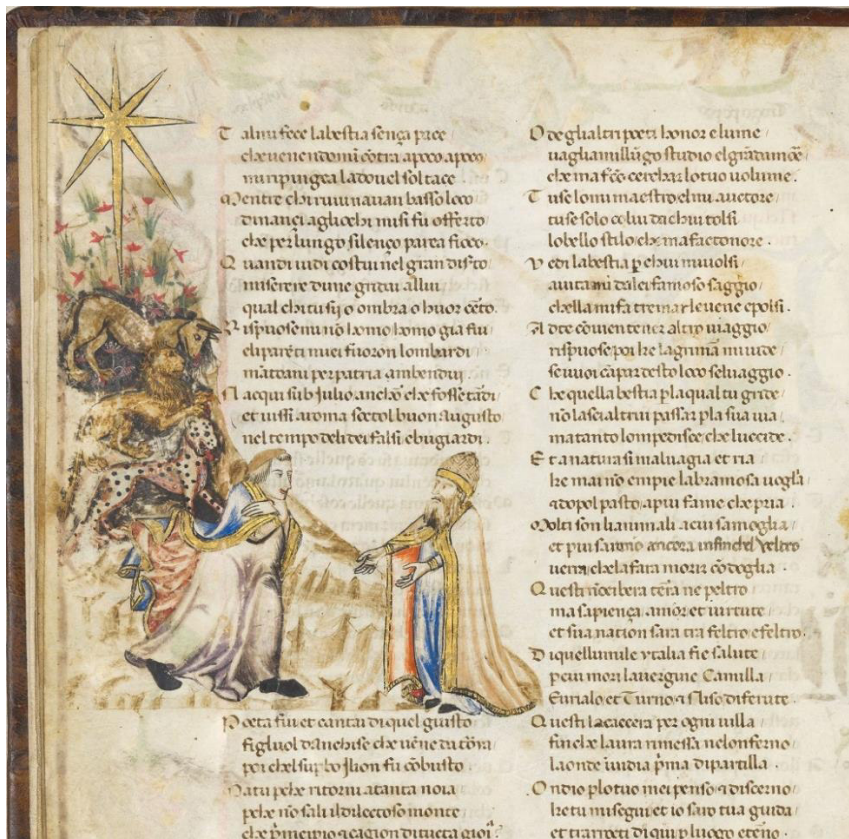 T almi fece labestia sença pace
che venendomi cōtra apoco apoco
mi ripingea ladovel sol tace
Mentre chi ruvinavan basso loco
dinanci agliochi misi fu offerto
che per lungo silenço parea fioco.
Q uandi uidi costui nel gran diserto
miserere dime gridai allui
qual chi tu sij o ombra o huom c̄to.
R ispuosemi nō homo homo gia fui
eli parēti miei furon lombardi
mātoani per patria ambendui.
N acqui sub Julio anchor che fosse tardi
et uissi aroma soctol buon augusto
nel tempo deli dei falsi ebugiardi.
P oeta fui et cantai di quel giusto
figluol danchise che vēne da
poi chel supbo Jlion fu cōbusto
M a tu pchē ritorni atanta noia
pchē nō sali ildilectoso monte
che pīncipio et cagion di tucta gioi
O deglialtri poeti honor e lume
uagliamil lūgo studio elgrādamoē
che ma fc̄o cerchar lo tuo volume.
T u se lo mi maestro elmi auctore
tu se solo colui da chui tolsi
lo bello stilo che ma facto honore.
V edi labestia p chui mi uolsi
aiutami dalei famoso saggio
chella mi fa tremar le uene epolsi.
A dte cōuien tener altro uiaggio
rispuose poi he lagrimar mi uide
se uuoi cāpar desto loco seluaggio.
C he quella bestia p la qual tu gride
nō lascia altrui passar p la sua uia
ma tanto lompedisce che luccide.
E t a natura si maluagia et ria
he mai nō empie labramosa uogla
et dopol pasto a piu fame che pria.
M olti son lianimali a cui samoglia
et piu saranno ancora infinchel veltro
uerra che la fara morir cō doglia.
Q uesti nō cibera terra ne peltro
ma sapiença amore et uirtute
et sua nation sara tra feltro e feltro.
D i quellumile ytalia fie salute
per cui mori lauergine Camilla
Eurialo et Turno et Niso di ferute.
Q uesti la caccera per ogni uilla
finche laura rimessa nelonferno
la onde inuidia pīma dipartilla.
O ndio plotuo mei penso et discerno
he tu mi segui et io saro tua guida
et trarroti di qui p luogo etēno